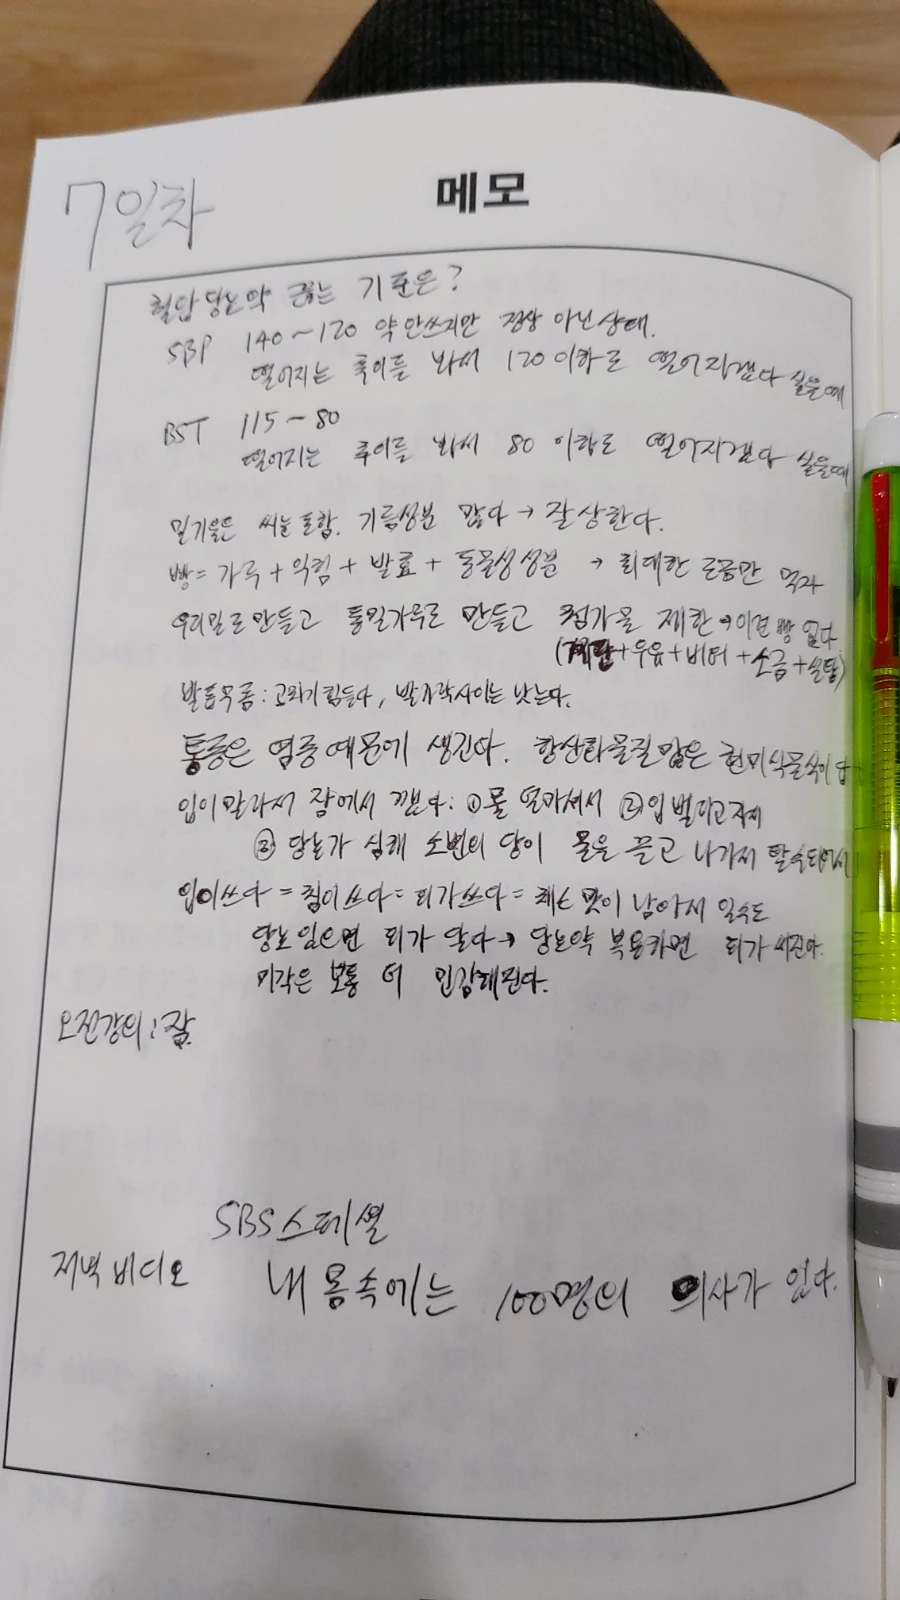 7일차
메모
혈압당뇨약 끊는 기준은?
SBP 140~120 약 안쓰지만 정상 아닌 상태.
떨어지는 추이를 봐서 120이하로 떨어지겠다 싶을때
BST 115~80
떨어지는 추이를 봐서 80 이하로 떨어지겠다 싶을때
밀기울은 씨눈 포함. 기름성분 많다 → 잘 상한다.
빵 = 가루 + 익힘 + 발효 + 동물성 성분 → 최대한 조금만 먹자
우리밀로 만들고 통밀가루로 만들고 첨가물 제한 → 이런 빵 없다.
(계란+우유+버터+소금+설탕)
발톱무좀: 고치기 힘든다, 발가락사이는 낫는다.
통증은 염증때문에 생긴다. 항산화물질 많은 현미식물식이 답
입이 말라서 잠에서 깬다: ① 물 덜마셔서 ② 입 벌리고 자서
③ 당뇨가 심해 소변의 당이 물을 끌고 나가서 탈수되어서
입이쓰다 = 침이쓰다 = 피가쓰다 = 맛이 남아서 일수도
당뇨 있으면 피가 달다 → 당뇨약 복용하면 피가 써진다.
미각은 보통 더 민감해진다.
오전강의: 잠.
SBS 스페셜
저녁 비디오 내 몸속에는 100명의 의사가 있다.